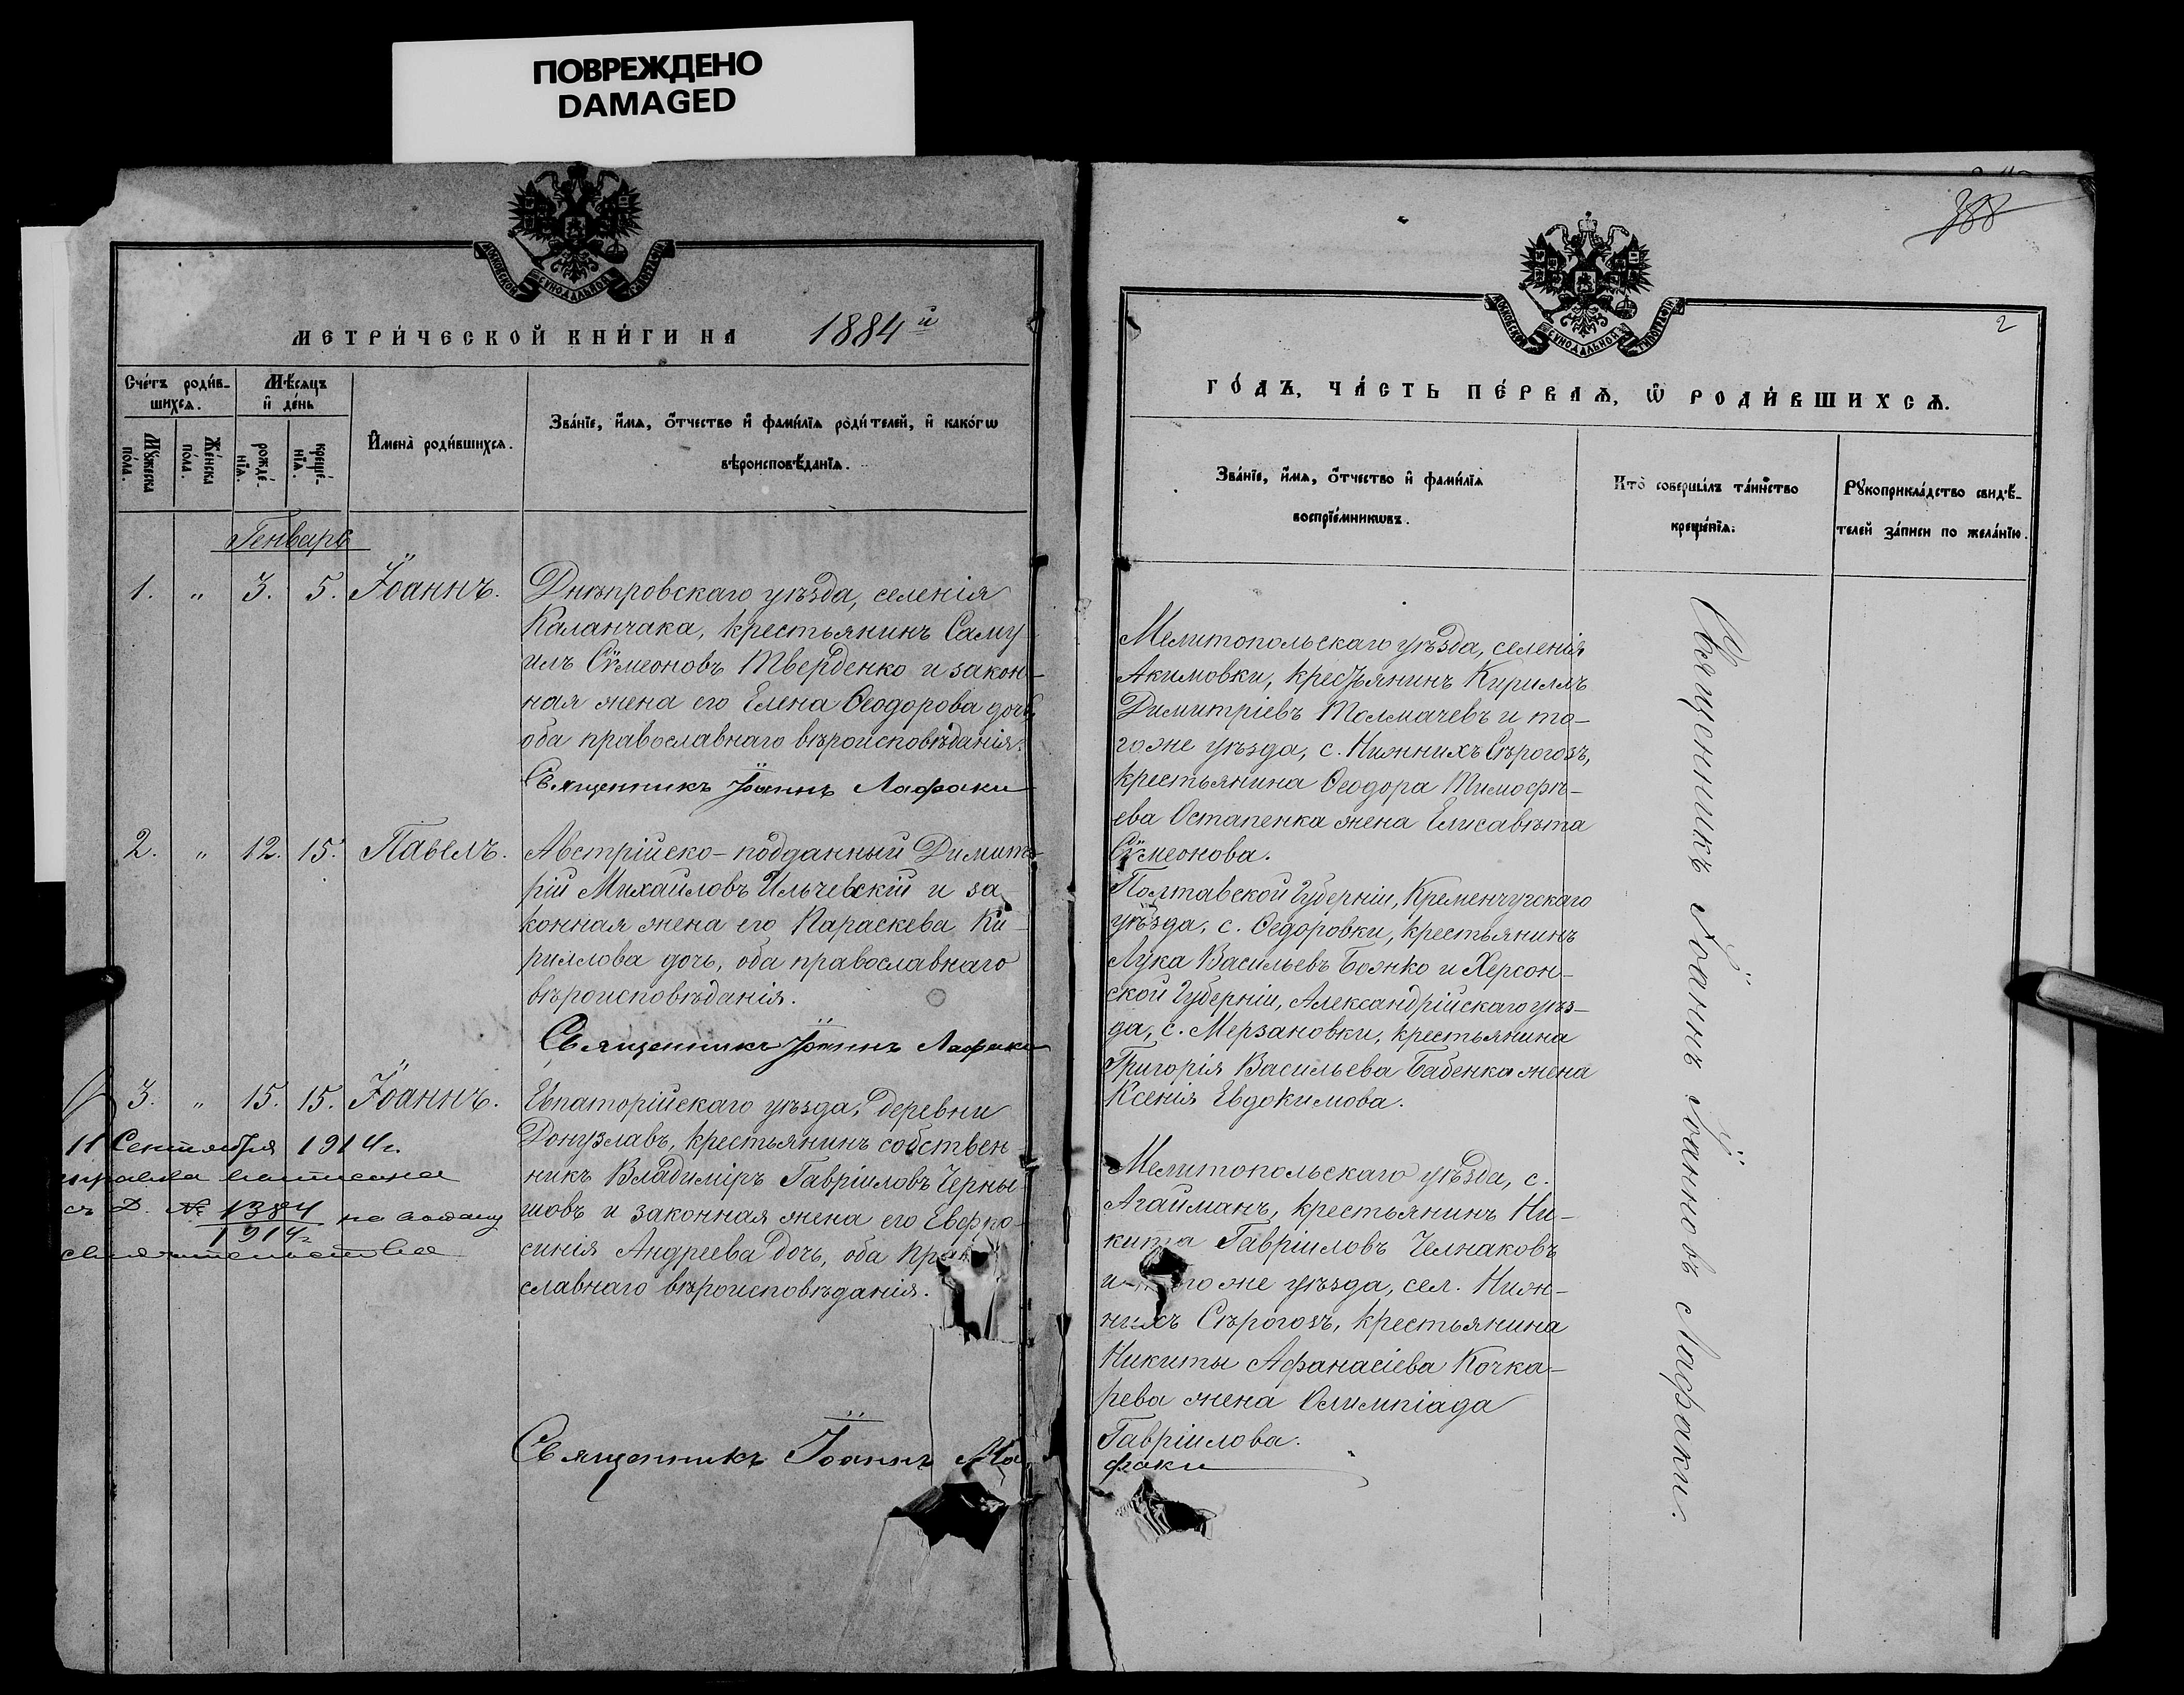 ПОВРЕЖДЕНО
DAMAGED
МОСКОВСКОЙ СѴНОДАЛЬНОЙ ТИПОГРАФІИ
МЕТРИ́ЧЕСКОЙ КНИ́ГИ НА 1884й
Сче́тъ роди́в-
шихсѧ.
Мѣ́сяцъ
и҆ де́нь
Мꙋ́жеска
по́ла.
Же́нска
по́ла.
рожде́-
нїѧ.
креще́-
нїѧ.
И҆мена̀ роди́вшихсѧ.
Зва́нїе, и҆́мѧ, ѻ҆́тчество и҆ фами́лїѧ роди́телей, и҆ како́гѡ
вѣроисповѣ́данїѧ.
Генварь
1. " 3. 5. Іоаннъ.
Днѣпровскаго уѣзда, селенія
Каланчака, крестьянинъ Саму-
илъ Сѵмеоновъ Тверденко и закон-
ная жена его Елена Ѳеодорова дочь,
оба православнаго вѣроисповѣданія.
Священникъ Іоаннъ Лафаки
2. " 12. 15. Павелъ.
Австрійско-подданный Димит-
рій Михайловъ Ильчевскій и за-
конная жена его Параскева Ки-
риллова дочь, оба православнаго
вѣроисповѣданія.
Священникъ Іоаннъ Лафаки
3. " 15. 15. Іоаннъ.
Евпаторійскаго уѣзда, деревни
Донузлавъ, крестьянинъ собствен-
никъ Владиміръ Гавріиловъ Черны-
шовъ и законная жена его Евфро-
синія Андреева дочь, оба пра
славнаго вѣроисповѣданія.
11 Сентября 1914г.
съ Д. № 1384
1914г.
Священникъ Іоаннъ Ла
388
2
МОСКОВСКОЙ СѴНОДАЛЬНОЙ ТИПОГРАФІИ
ГО́ДЪ, ЧА́СТЬ ПЕ́РВАѦ, Ѽ РОДИ́ВШИХСѦ.
Зва́нїе, и҆́мѧ, ѻ҆́тчество и҆ фами́лїѧ
воспрїе́мникѡвъ.
Кто̀ соверша́лъ та́инство
креще́нїѧ.
Рꙋкоприкла́дство свидѣ́-
телей за́писи по жела́нїю.
Мелитопольскаго уѣзда, селенія
Акимовки, крестьянинъ Кириллъ
Димитріевъ Толмачевъ и то-
гоже уѣзда, с. Нижнихъ Сѣрогозъ,
крестьянина Ѳеодора Тимоѳѣ-
ева Остапенка жена Елисавѣта
Сѵмеонова.
Полтавской Губерніи, Кременчугскаго
уѣзда, с. Ѳедоровки, крестьянинъ
Лука Васильевъ Божко и Херсон-
ской Губерніи, Александрійскаго уѣз-
да, с. Мерзановки, крестьянина
Григорія Васильева Бабенка жена
Ксенія Евдокимова.
Мелитопольскаго уѣзда, с.
Агайманъ, крестьянинъ Ни-
кита Гавріиловъ Челнаковъ
и того же уѣзда, сел. Ниж-
нихъ Сѣрогозъ, крестьянина
Никиты Аѳанасіева Кочка-
рева жена Олимпіада
Гавріилова.
факи
Священникъ Іоаннъ Іоанновъ Лафаки.